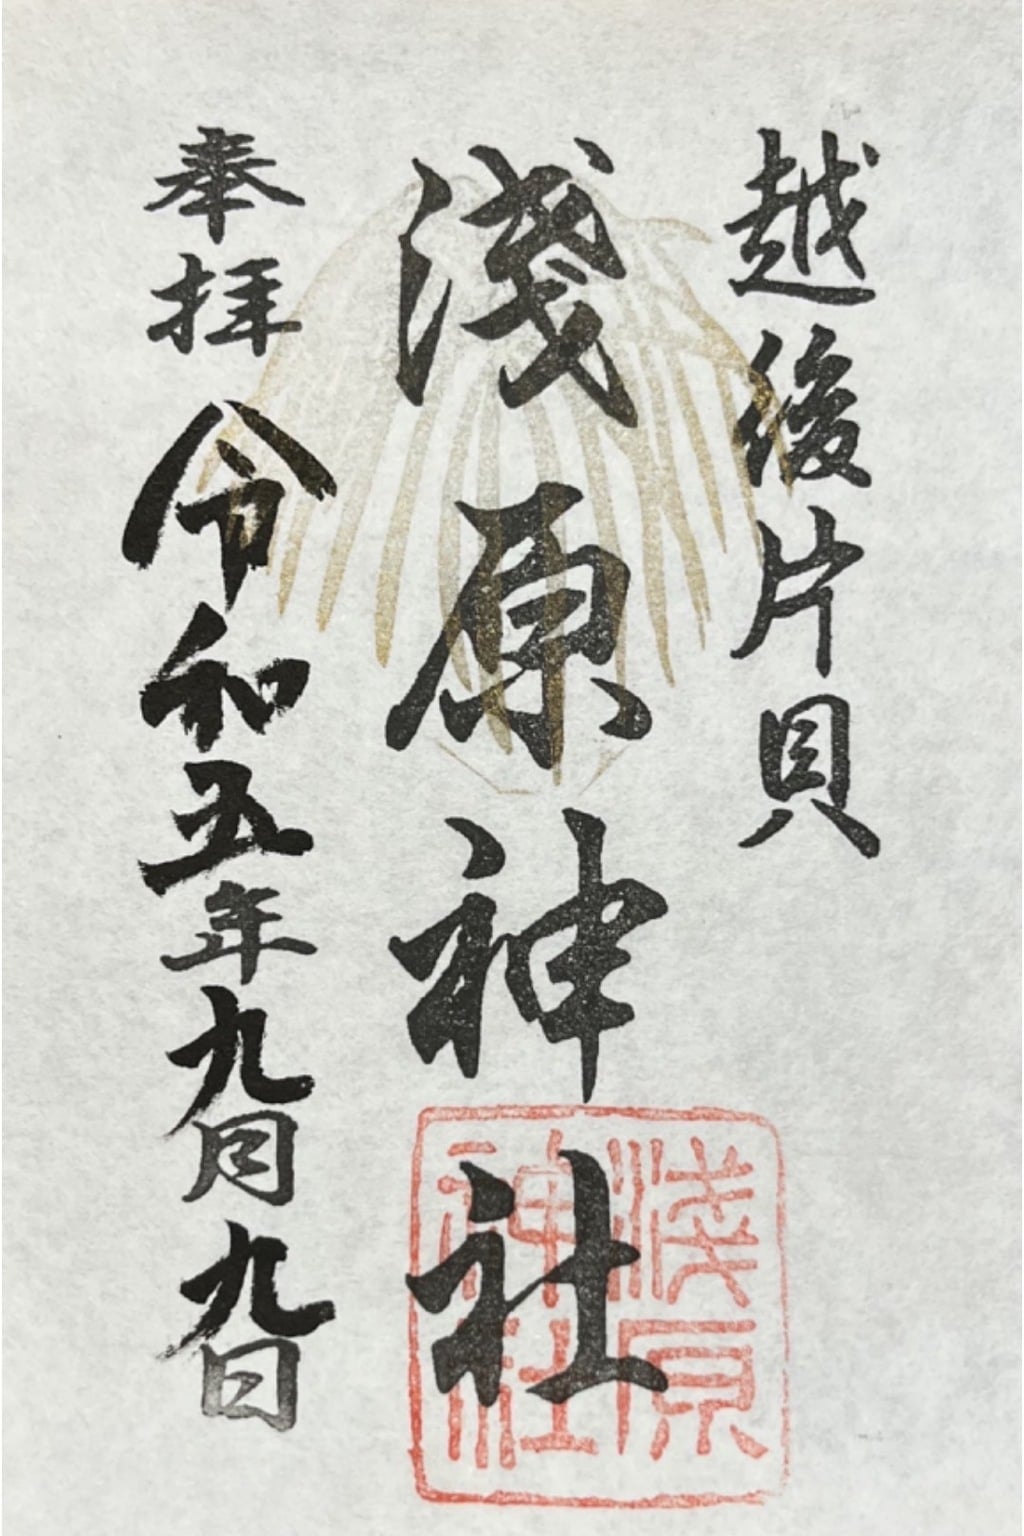 越後片貝
淺原神社
淺原
神社
奉拝 令和五年九月九日